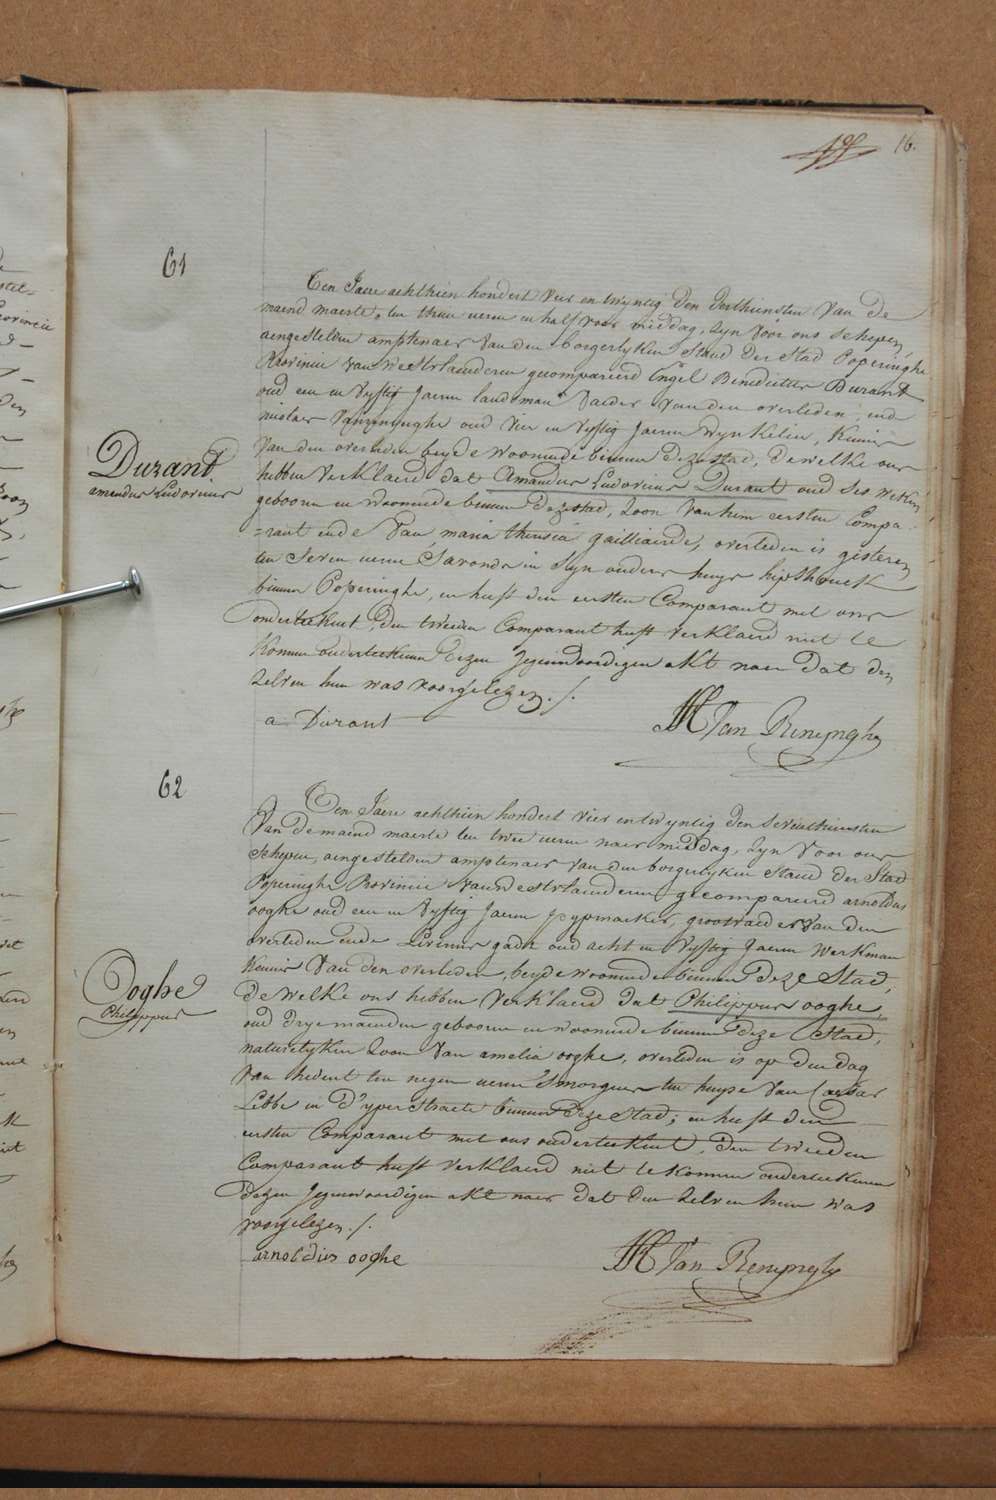 16.
61
Ten Jaere achthien hondert vier en twyntig den derthiensten van de
maend maerte, ten thien ueren en half voor middag, zyn voor ons schepen,
aengestelden amptenaer van den borgerlyken staed der stad Poperinghe
Provincie van Westvlaenderen gecompareerd Engel Benedictus Durant
oud een en vyftig jaeren landsman vaeder van den overleden ende
nicolaes oud vier en vyftig jaeren wynkelier, kennis
van den overleden beyde woonende binnen deze stad, dewelke ons
hebben verklaerd dat Amandus Ludovicus Durant oud ses weken,
Durant
amandus Ludovicus
geboren en woonende binnen deze stad, zoon van hem eersten Compa-
=rant ende van maria theresia gailliaerde, overleden is gisteren
ten seven ueren savonds in syn ouders huys
binnen Poperinghe, en heeft den eersten Comparant met ons
onderteekent, den tweeden Comparant heeft verklaerd niet te
konnen onderteekenen dezen jegenwoordigen akt naer dat den
zelven hun was voorgelezen./.
a Durant
Van Renynghe
62
Ten Jaere achthien hondert vier en twyntig den seventhiensten
van de maend maerte ten twee ueren naer middag, zyn voor ons
schepen, aengestelden amptenaer van den borgerlyken staed der stad
Poperinghe Provincie van Westvlaenderen gecompareerd arnoldus
ooghe oud een en vyftig jaeren pypmaeker, grootvaeder van den
overleden ende Livinus oud acht en vyftig jaeren werkman
kennis van den overleden, beyde woonende binnen deze stad,
Ooghe
Philippus
de welke ons hebben verklaerd dat Philippus ooghe,
oud drye maenden geboren en woonende binnen deze stad,
naturelyken zoon van amelia ooghe, overleden is op den dag
van heden ten negen ueren 'smorgens ten huyse van
Lebbe in d'yper straete binnen deze stad; en heeft den
eersten Comparant met ons onderteekent, den tweeden
Comparant heeft verklaerd niet te konnen onderteekenen
dezen jegenwoordigen akt naer dat den zelven hun was
voorgelezen./.
arnoldus ooghe
Van Renynghe